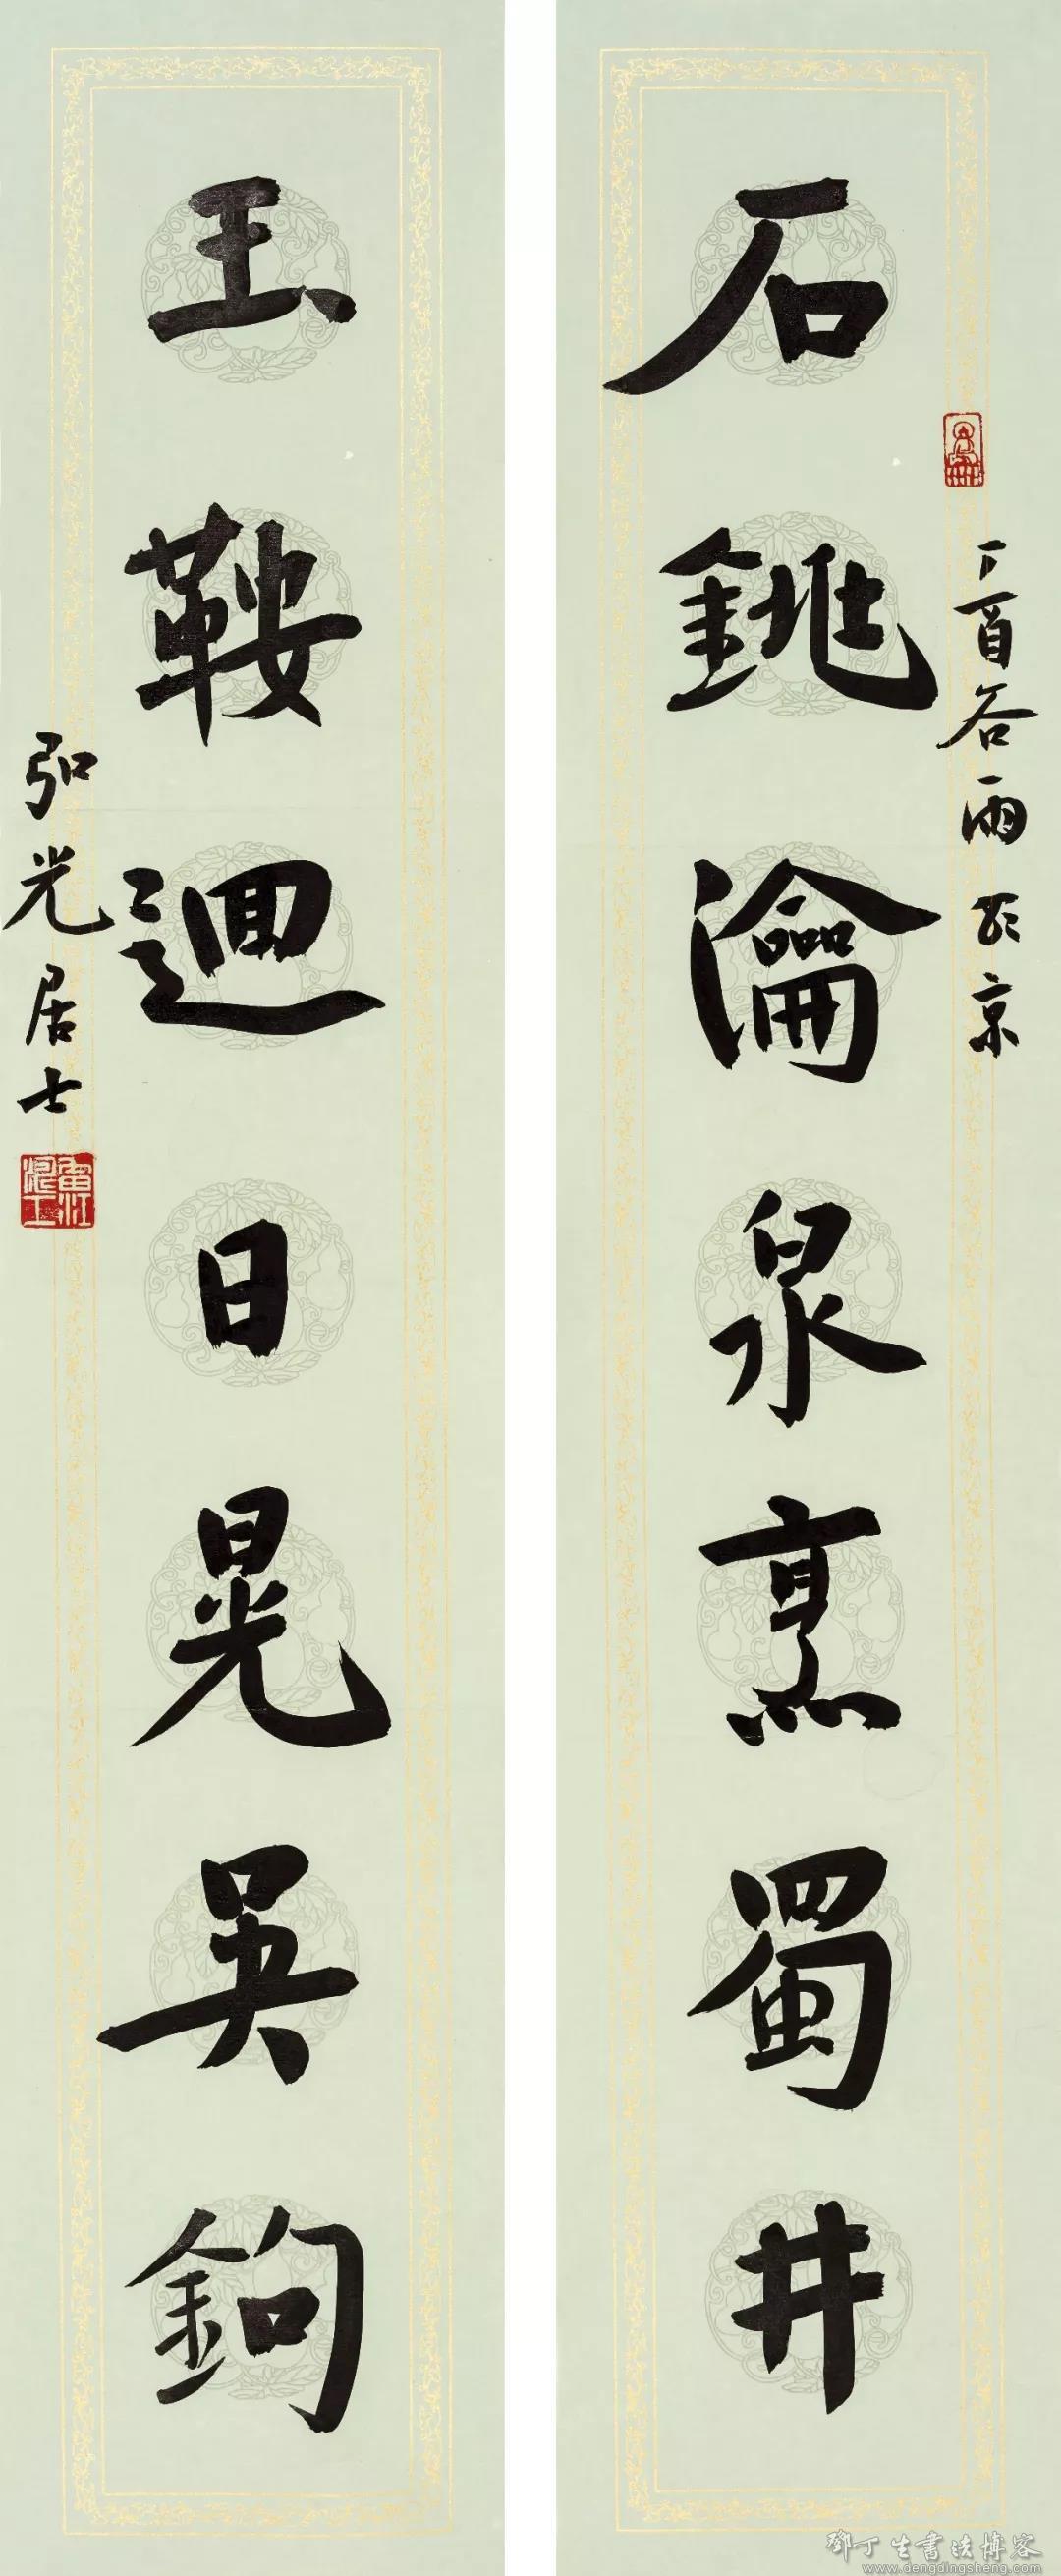 丁酉谷雨於京
石銚瀹泉烹蜀井
玉鞍迴日晃吴鉤
弘光居士
鄧丁生書法博客
www.dengdingsheng.com